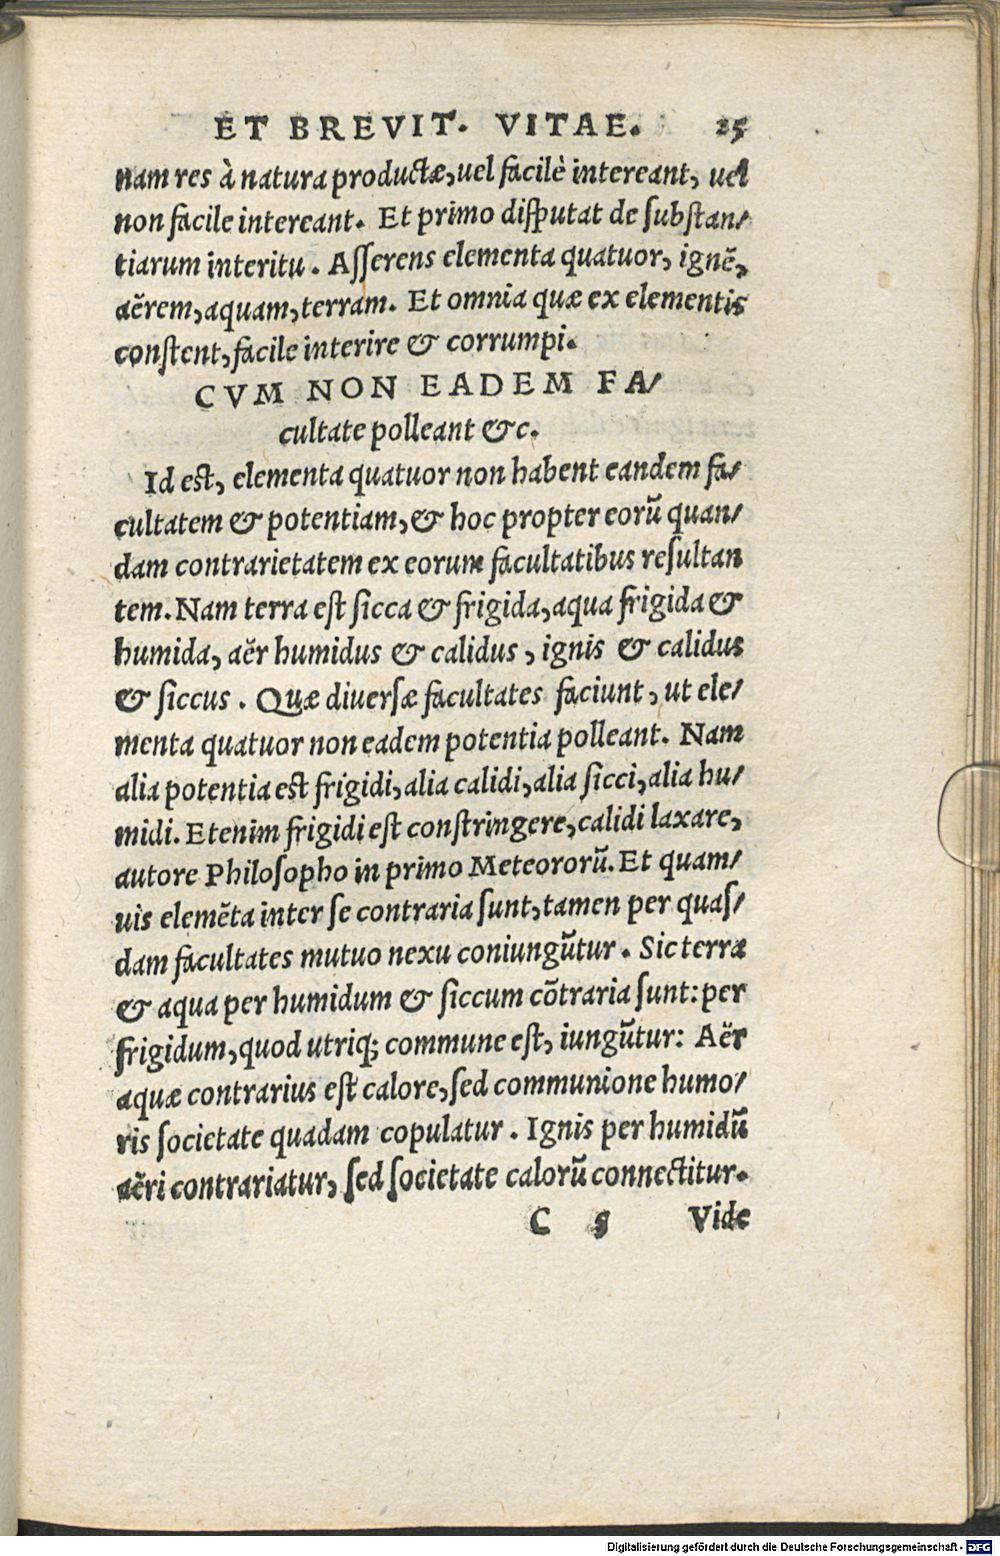 ET BREVIT. VITAE. 25
nam res à natura productæ, uel facilè intereant, uel
non facile intereant. Et primo disputat de substan/
tiarum interitu. Asserens elementa quatuor, ignẽ,
aẽrem, aquam, terram. Et omnia quæ ex elementis
constent, facile interire & corrumpi.
CVM NON EADEM FA/
cultate polleant &c.
Id est, elementa quatuor non habent eandem fa/
cultatem & potentiam, & hoc propter eorũ quan/
dam contrarietatem ex eorum facultatibus resultan
tem. Nam terra est sicca & frigida, aqua frigida &
humida, aẽr humidus & calidus, ignis & calidus
& siccus. Quæ diuersæ facultates faciunt, ut ele/
menta quatuor non eadem potentia polleant. Nam
alia potentia est frigidi, alia calidi, alia sicci, alia hu/
midi. Etenim frigidi est constringere, calidi laxare,
autore Philosopho in primo Meteororũ. Et quam/
uis elemẽta inter se contraria sunt, tamen per quas/
dam facultates mutuo nexu coniungũtur. Sic terræ
& aqua per humidum & siccum cõtraria sunt: per
frigidum, quod utriq; commune est, iungũtur: Aẽr
aquæ contrarius est calore, sed communione humo/
ris societate quadam copulatur. Ignis per humidũ
aẽri contrariatur, sed societate calorũ connectitur.
C 5 Vide
Digitalisierung gefördert durch die Deutsche Forschungsgemeinschaft - DFG